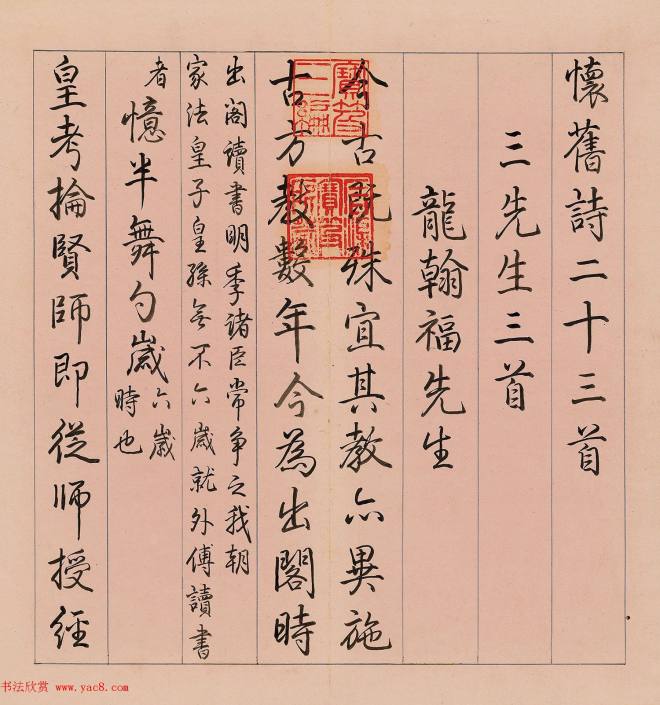 懷舊詩二十三首
三先生三首
龍翰福先生
今古既殊宜其教亦異施
古方教數年今為出閣時
出閣讀書明季諸臣常爭之我朝
家法皇子皇孫無不六歲就外傅讀書
者
憶半舞勺歲
六歲
時也
皇考掄賢師即從師授經
寶笈
三編
书法欣赏 www.yac8.com